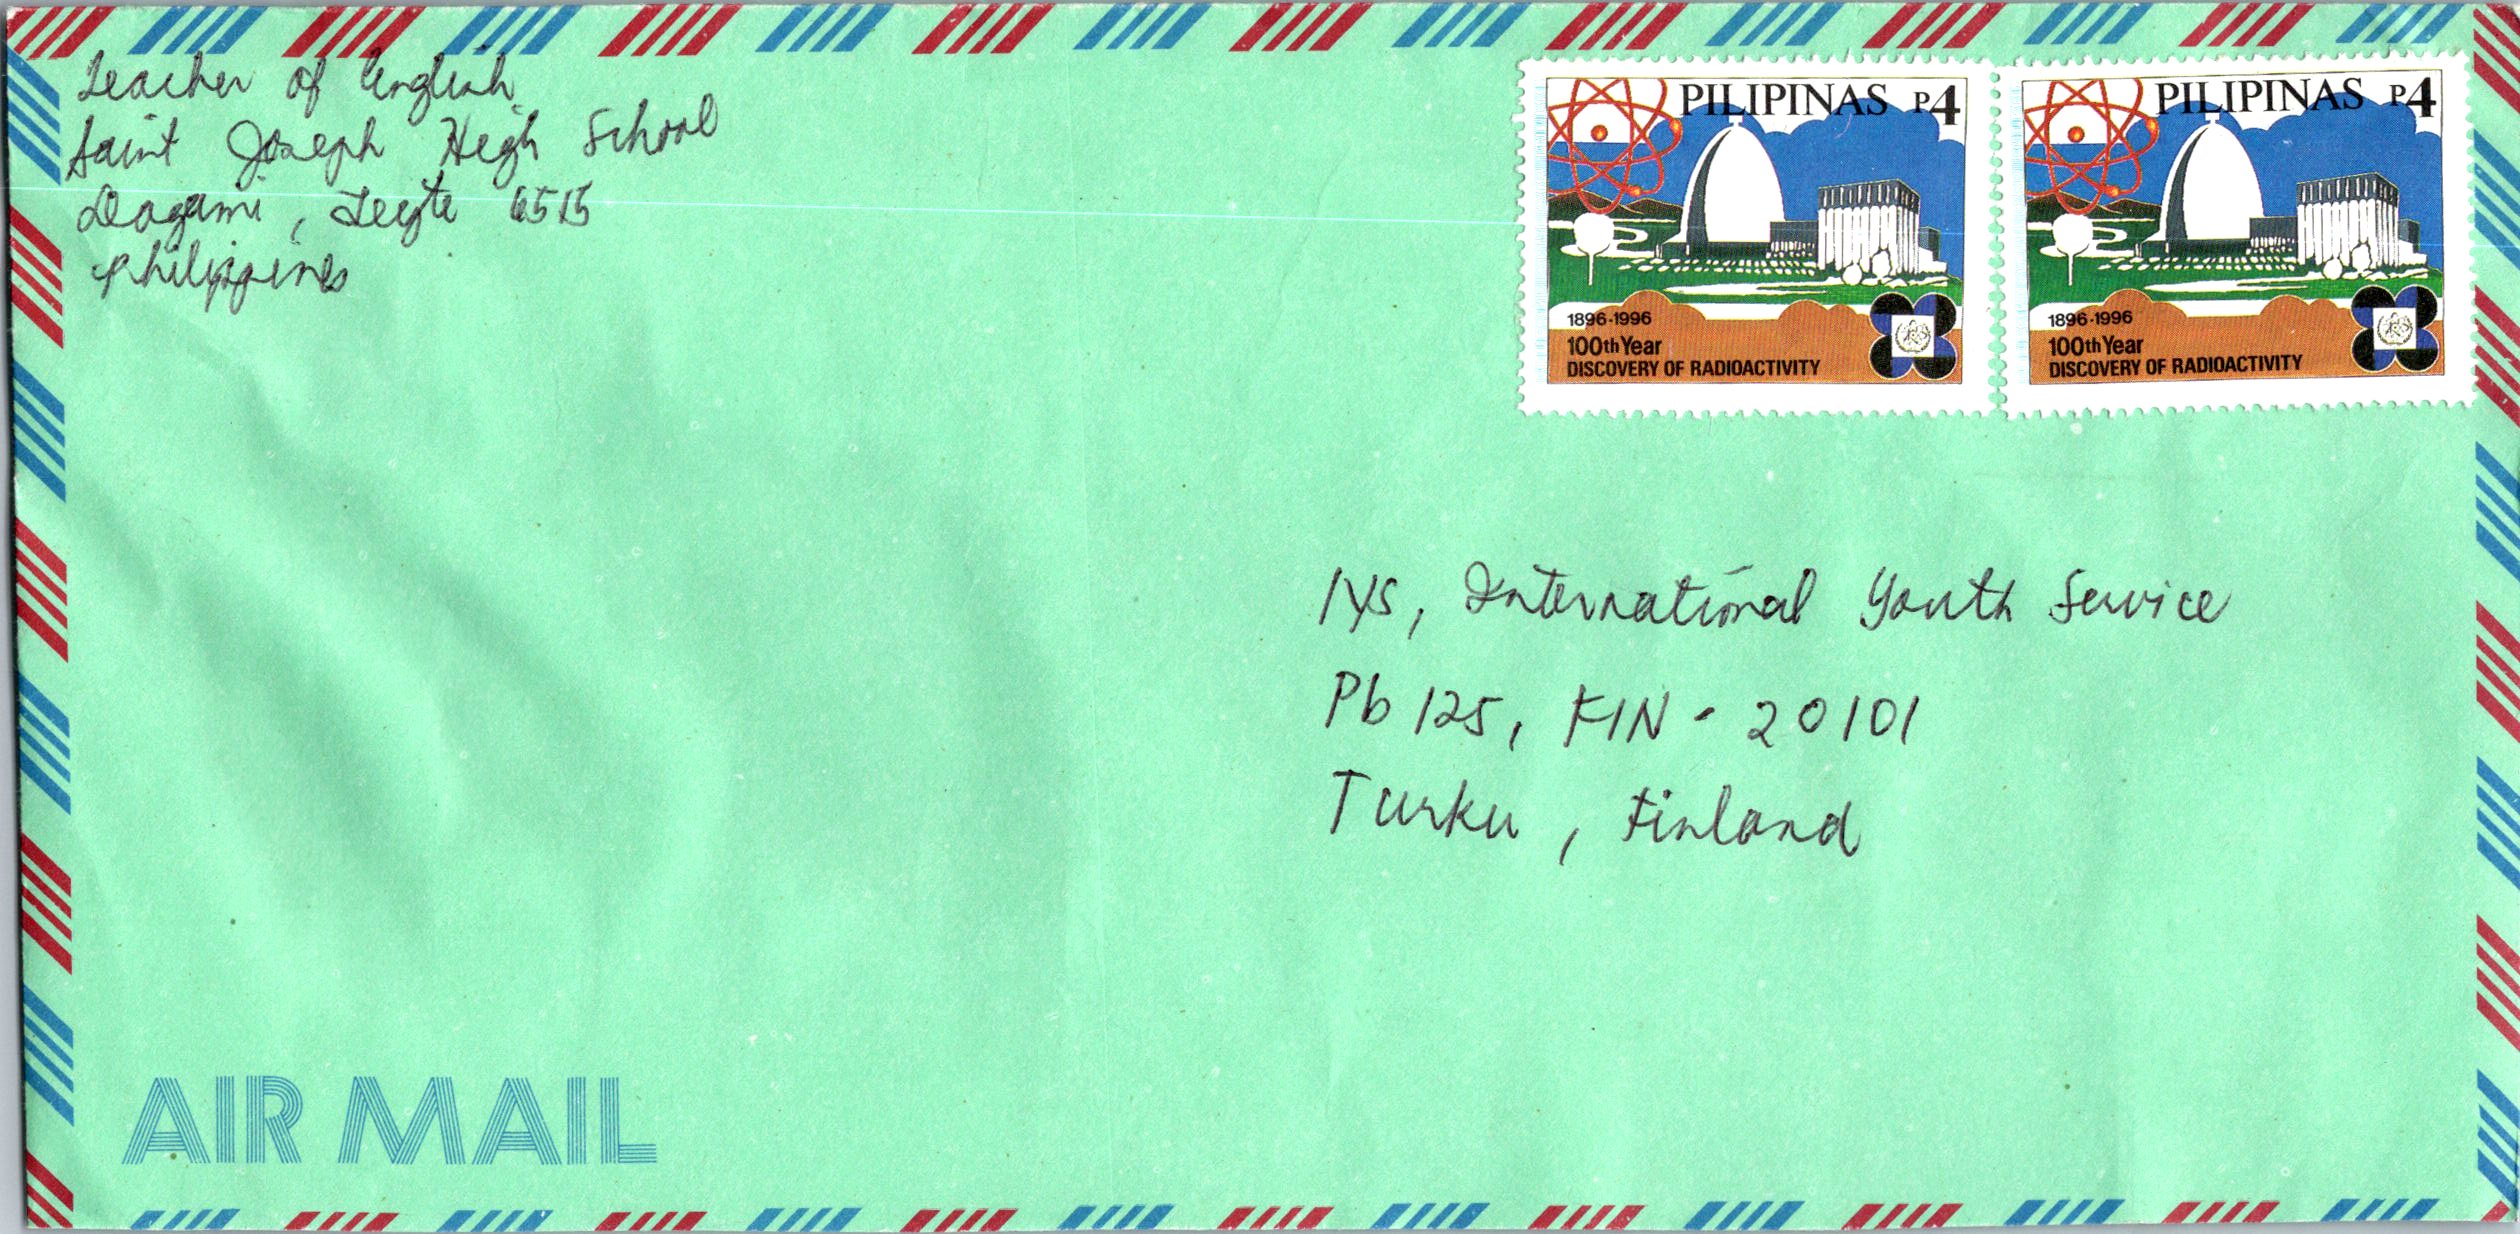 Teacher of English
Saint Joseph High School
Dagami, Leyte 6515
Philippines
PILIPINAS P4
1896-1996
100th Year
DISCOVERY OF RADIOACTIVITY
PILIPINAS P4
1896-1996
100th Year
DISCOVERY OF RADIOACTIVITY
IYS, International Youth Service
Pb 125, FIN - 20101
Turku, Finland
AIR MAIL